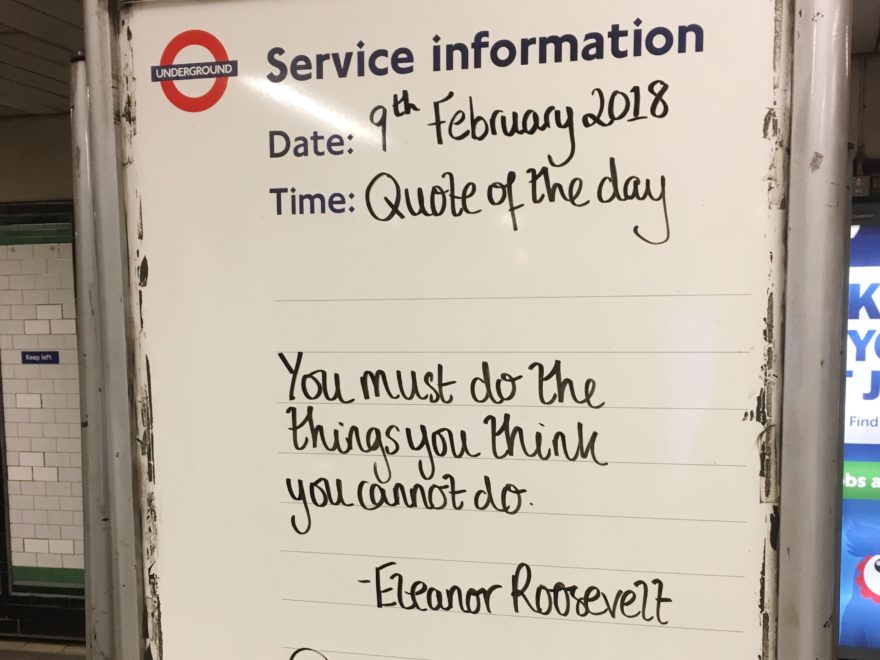 UNDERGROUND
Service information
Date: 9th February 2018
Time: Quote of the day
Keep left
You must do the
things you think
you cannot do.
-Eleanor Roosevelt
Find